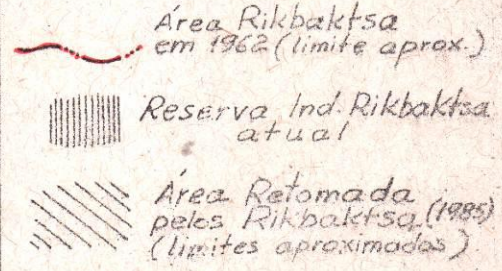 Área Rikbaktsa
em 1962 (limite aprox.)
Reserva Ind. Rikbaktsa
atual
Área Retomada
pelos Rikbaktsa (1985)
(limites aproximados)